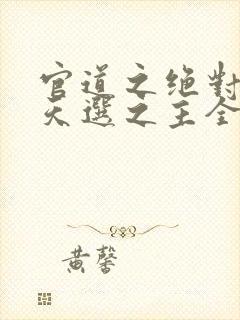 官道之绝對
天選之主全
黄馨